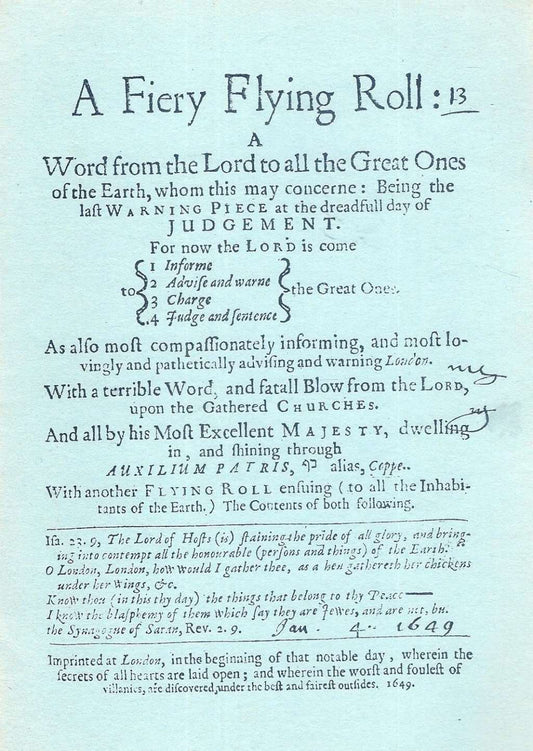 A Fiery Flying Roll: 13
A
Word from the Lord to all the Great Ones
of the Earth, whom this may concerne: Being the
laſt WARNING PIECE at the dreadfull day of
JUDGEMENT.
For now the LORD is come
to
1 Informe
2 Adviſe and warne
3 Charge
4 Judge and ſentence
the Great Ones.
As alſo moſt compaſſionately informing, and moſt lo-
vingly and pathetically adviſing and warning London.
With a terrible Word, and fatall Blow from the LORD,
upon the Gathered CHURCHES.
And all by his Moſt Excellent MAJESTY, dwelling
in, and ſhining through
AUXILIUM PATRIS, פ alias, Coppe.
With another FLYING ROLL enſuing (to all the Inhabi-
tants of the Earth.) The Contents of both following.
Iſa. 23. 9, The Lord of Hoſts (is) ſtaining the pride of all glory, and bring-
ing into contempt all the honourable (perſons and things) of the Earth.
O London, London, how would I gather thee, as a hen gathereth her chickens
under her wings, &c.
Know thou (in this thy day) the things that belong to thy Peace—
I know the blaſphemy of them which ſay they are Jewes, and are not, bu.
the Synagogue of Satan, Rev. 2. 9. Jan. 4. 1649
Imprinted at London, in the beginning of that notable day, wherein the
ſecrets of all hearts are laid open; and wherein the worſt and fouleſt of
villanies, are diſcovered, under the beſt and faireſt outſides. 1649.